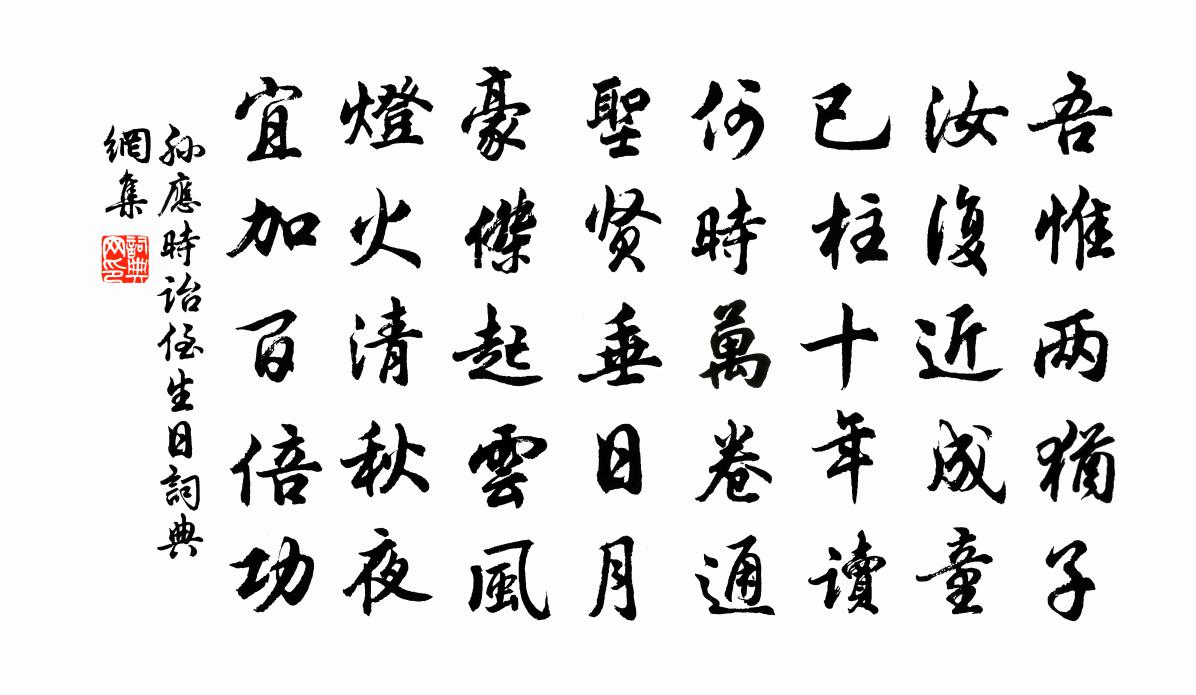 吾惟兩猶子
汝復近成童
已柱十年讀
何時萬卷通
聖贤垂日月
豪傑起雲風
燈火清秋夜
宜加百倍功
孙應時诒侄生日詞典
網集
詞典网印